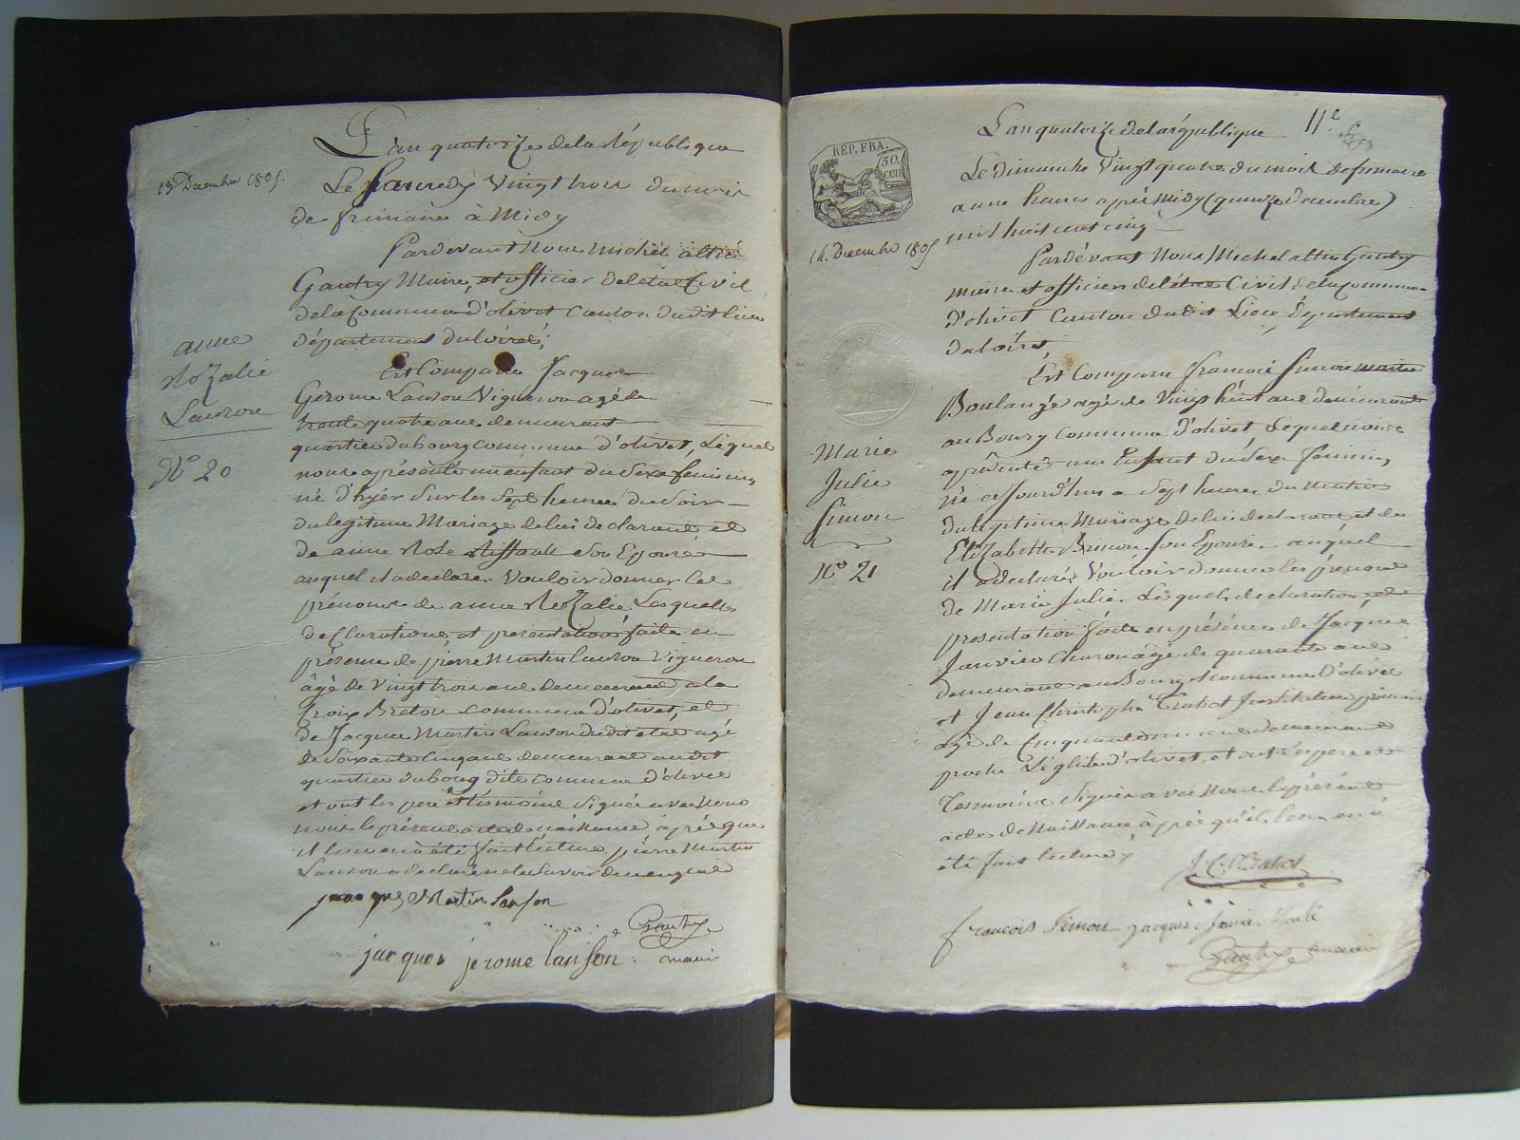 L'an quatorze de la République
13 Decembre 1805.
Le Samedy vingt trois du mois
de frimaire à Midy
Pardevant Nous Michel
Gautry Maire, et officier de létat Civil
de la Commune d'olivet Canton dudit lieu
département du Loiret,
anne
Rozalie
Lanson
N° 20
Est Comparu Jacques
Gerome Lanson Vigneron agé de
trente quatre ans demeurant
quartier du bourg commune d'olivet, Lequel
nous a présenté un enfant du Sexe feminin,
né d'hyer Sur les Sept heures du Soir
du legitime Mariage de lui declarant et
de anne Rose Son Epouse
auquel il a declaré Vouloir donner les
prénoms de anne Rozalie. Lesquelles
declarations, et presentations faite en
présence de pierre Martin Lanson Vigneron
âgé de Vingt trois ans demeurant a la
Croix Breton commune d'olivet, et
de Jacques Martin Lanson dudit etat agé
de Soixante Cinq ans demeurant audit
quartier du bourg dite commune d'olivet
et ont les pere et témoins Signés avec Nous
le présent acte de naissance après que
il leur en a été fait lecture, pierre Martin
Lanson a declaré ne le Savoir de ce enquis
jacques Martin lanson
Gautry
jacques jerome lanson
maire
L'an quatorze de la république
11e
REP. FRA.
50.
CEN
Le Dimanche Vingt quatre du mois de frimaire
a une heure après midy (quinze decembre)
mil huit cent cinq
14. Decembre 1805
Pardevant Nous Michel Gautry
maire et officier de létat Civil de la Commune
d'olivet Canton dudit Lieu Département
du Loiret,
Marie
Julie
Simon
N° 21
Est Comparu françois Simon
Boulangé agé de Vingt huit ans demeurant
au Bourg commune d'olivet Lequel nous a
présenté un Enfant du Sexe feminin,
né ce Jourd'hui a Sept heures du matin
du legitime Mariage de lui declarant et de
Elizabette Son Epouse auquel
il a déclaré Vouloir donner les prénoms
de Marie Julie. Lesquels declaration, et
presentation faite en présence de Jacques
Janvier Charon âgé de quarante ans
demeurant au Bourg commune d'olivet
et Jean Christophe Instituteur primaire
agé de Cinquante ans demeurant
proche L'église d'olivet, et ont les pere et
Temoins Signés avec nous le présent
acte de Naissance après qu'il leur en a
été fait lecture,
françois Simon jacques
Gautry maire